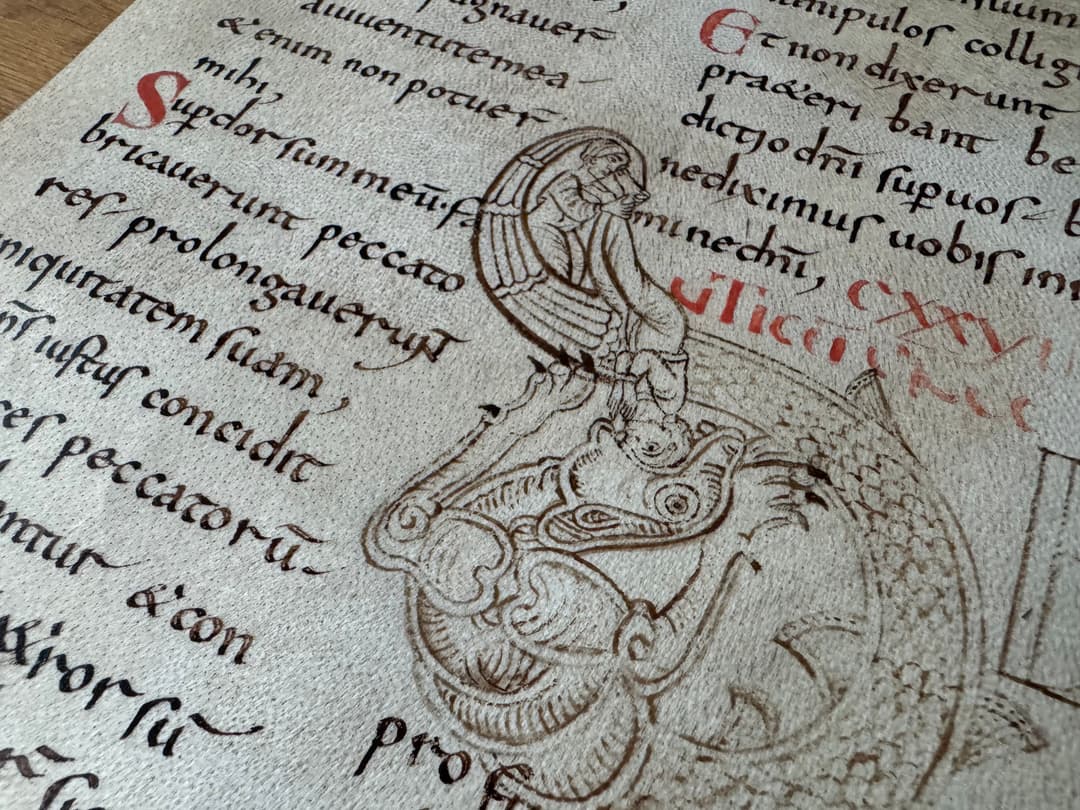 ugnauer̄
aiuuentutemea
&enim non potuer̄
mihi,
Sup̱dorſummeū·fa
bricauerunt peccato
reſ prolongauerunt
niquitatem ſuam,
n̄ſ iuſtuſ concidit
eſ peccatorū.
ntur &con
&rorſū
nipuloſ collig
Et non dixerunt
pra&eri bant be
dictio dn̄i ſup̱uoſ
nediximuſ uobiſ in
minedn̄i,
CXXVI
prof